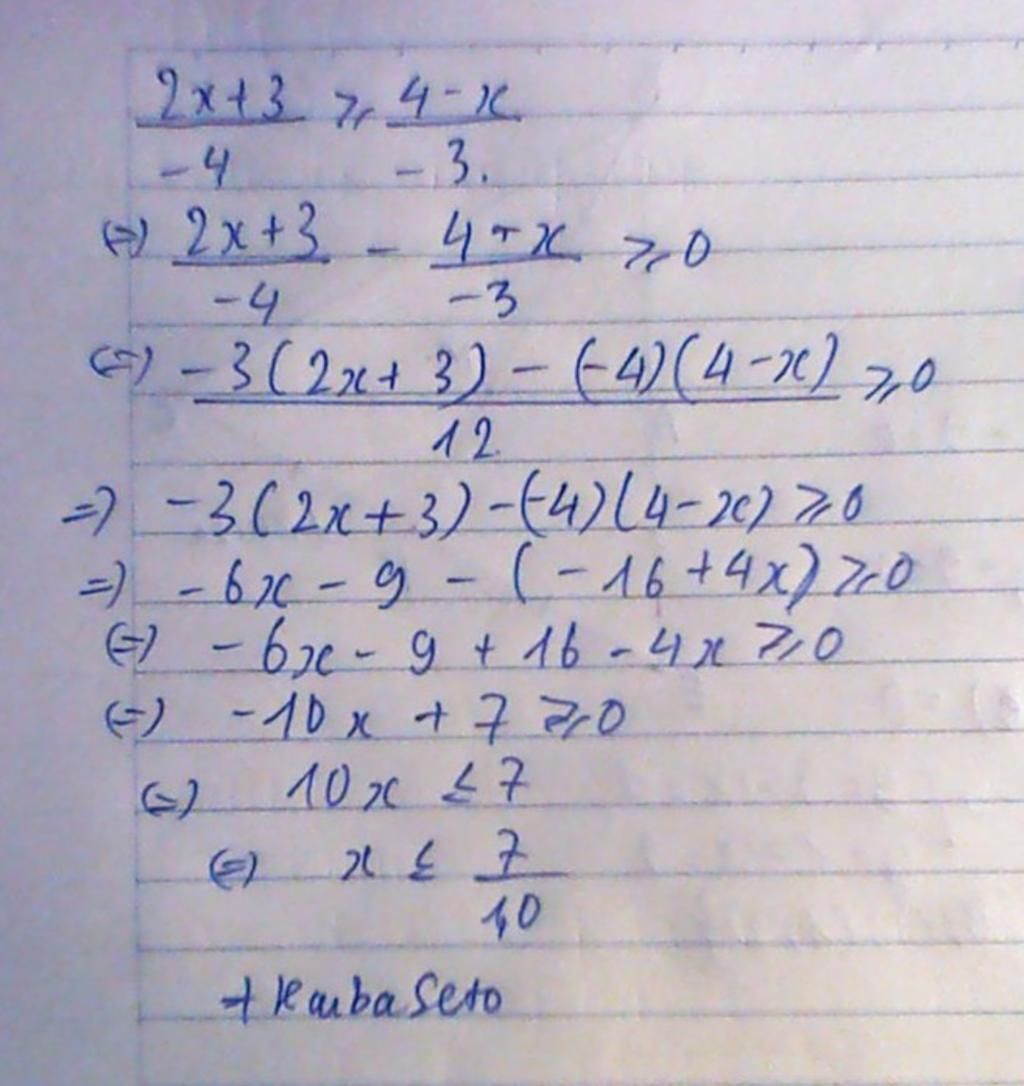 (2x+3)/(-4) ⩾ (4-x)/(-3).
(=) (2x+3)/(-4) - (4-x)/(-3) ⩾ 0
(=) (-3(2x+3) - (-4)(4-x))/12 ⩾ 0
=) -3(2x+3) -(-4)(4-x) ⩾ 0
=) -6x - 9 - (-16+4x) ⩾ 0
(=) -6x - 9 + 16 - 4x ⩾ 0
(=) -10x + 7 ⩾ 0
(=) 10x ≤ 7
(=) x ≤ 7/10